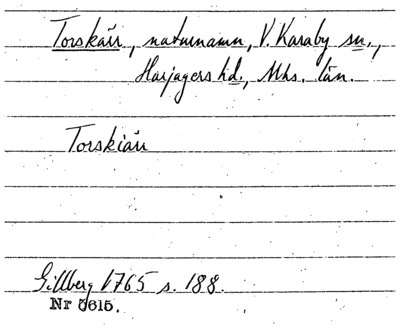 Torskärr, naturnamn, V. Karaby sn.,
Harjagers hd., Mhs. län.
Torskiärr
Gillberg 1765 s. 188.
Nr 6615.